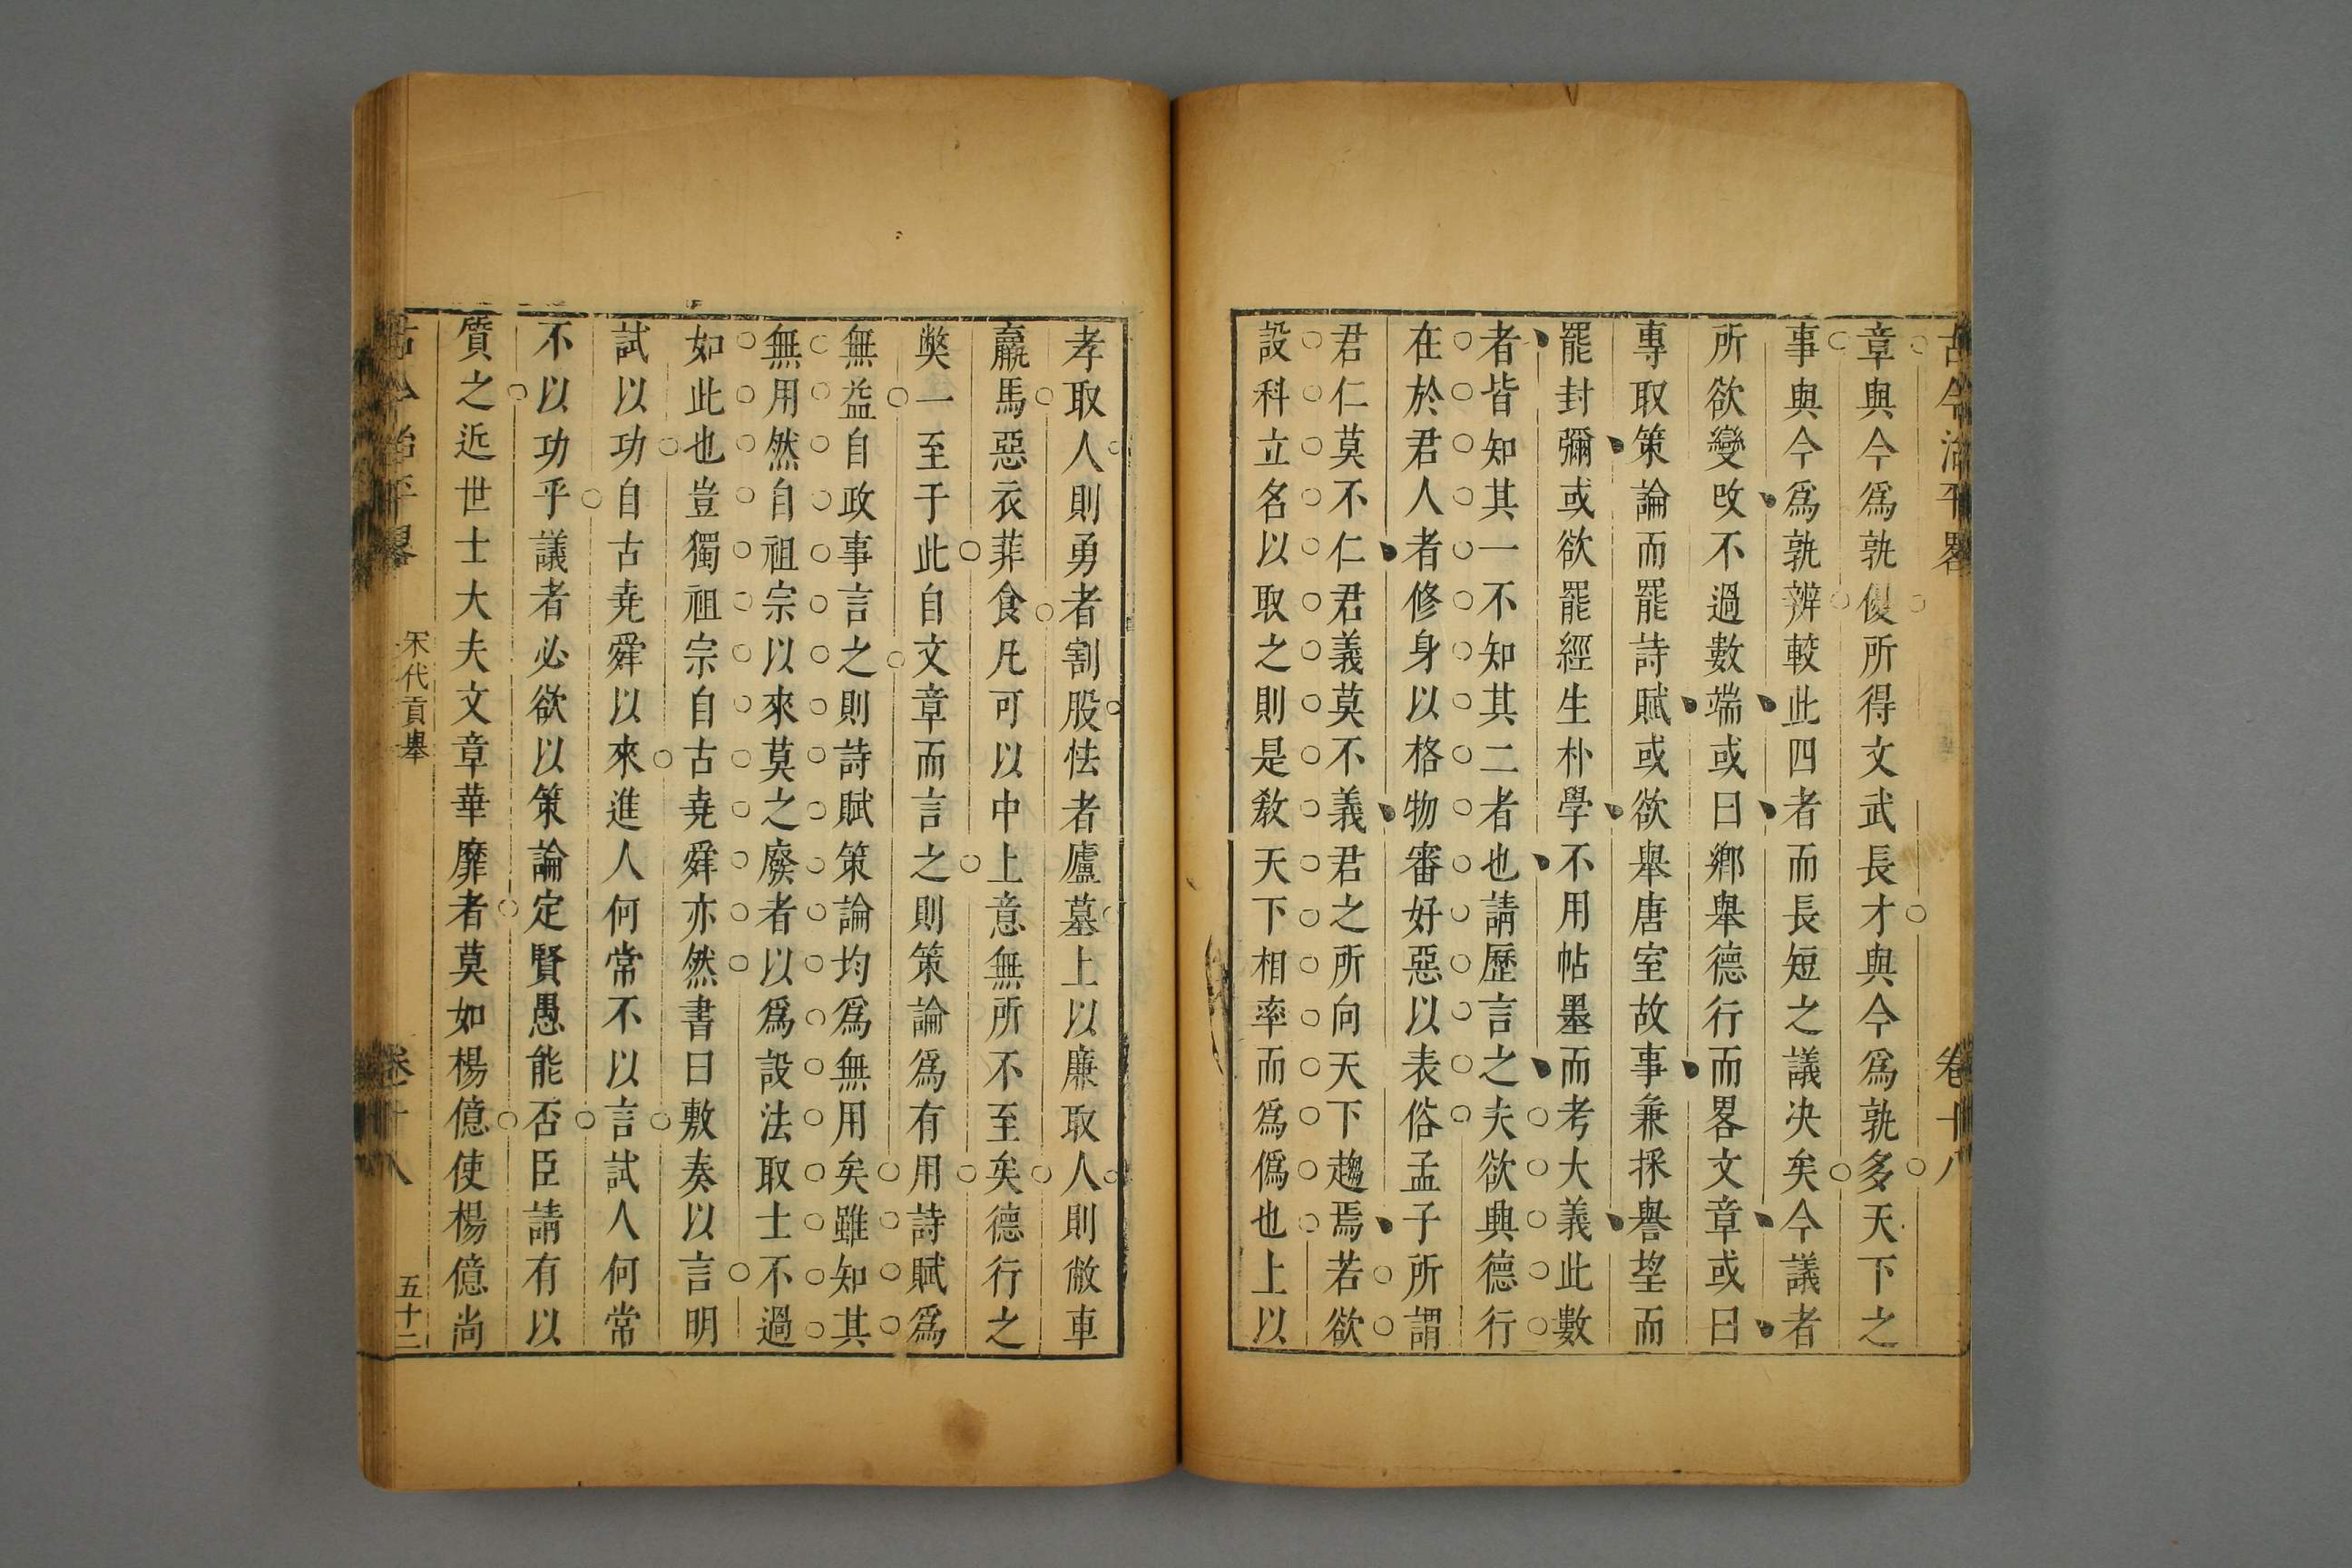 古今治平畧 卷十八
章與今爲孰優所得文武長才與今爲孰多天下之
事與今爲孰辨較此四者而長短之議决矣今議者
所欲變改不過數端或曰鄉舉德行而畧文章或曰
專取策論而罷詩賦或欲舉唐室故事兼採譽望而
罷封彌或欲罷經生朴學不用帖墨而考大義此數
者皆知其一不知其二者也請歷言之夫欲興德行
在於君人者修身以格物審好惡以表俗孟子所謂
君仁莫不仁君義莫不義君之所向天下趨焉若欲
設科立名以取之則是敎天下相率而爲僞也上以
孝取人則勇者割股怯者廬墓上以廉取人則敝車
羸馬惡衣菲食凡可以中上意無所不至矣德行之
弊一至于此自文章而言之則策論爲有用詩賦爲
無益自政事言之則詩賦策論均爲無用矣雖知其
無用然自祖宗以來莫之廢者以爲設法取士不過
如此也豈獨祖宗自古堯舜亦然書曰敷奏以言明
試以功自古堯舜以來進人何常不以言試人何常
不以功乎議者必欲以策論定賢愚能否臣請有以
質之近世士大夫文章華靡者莫如楊億使楊億尚
古今治平畧 宋代貢舉 卷十八 五十二